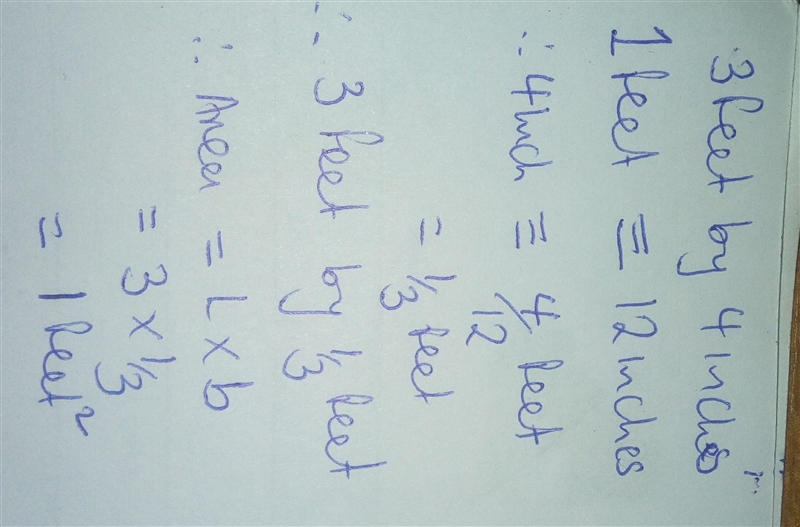 3 feet by 4 inches
1 feet ≡ 12 inches
∴ 4 inch ≡ 4/12 feet
= 1/3 feet
∴ 3 feet by 1/3 feet
∴ Area = L × b
= 3 × 1/3
= 1 feet²